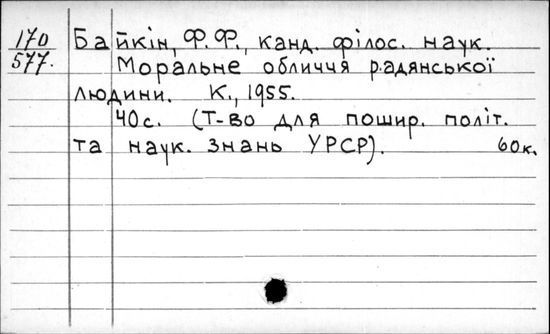 170
577.
Байкін, Ф.Ф., канд. філос. наук.
Моральне обличчя радянської
людини. К., 1955.
40с. (Т-во для пошир. політ.
та наук. знань УРСР). 60к.